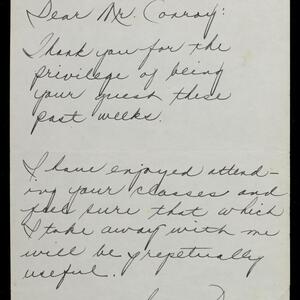 Dear Mr. Conroy:
Thank you for the
privilege of being
your guest these
past weeks.
I have enjoyed attend-
ing your classes and
feel sure that which
I take away with me
will be prepetually
useful.